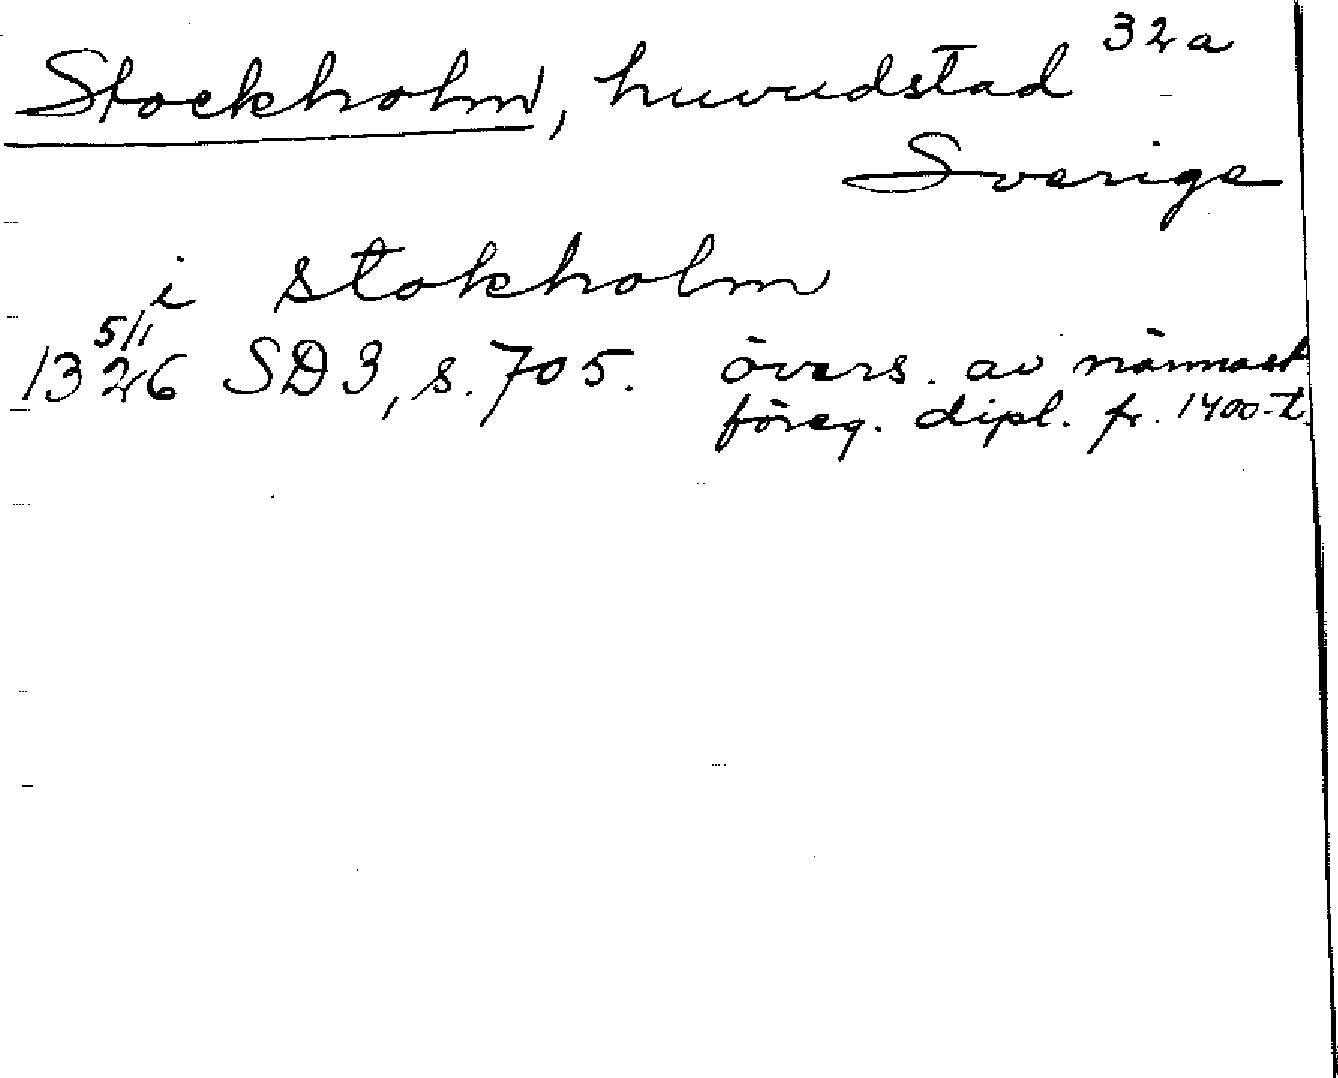 32a
Stockholm, huvudstad
Sverige
i stokholm
5/1
1326 SD 3, s. 705. övers. av närmast
föreg. dipl. fr. 1400-t.